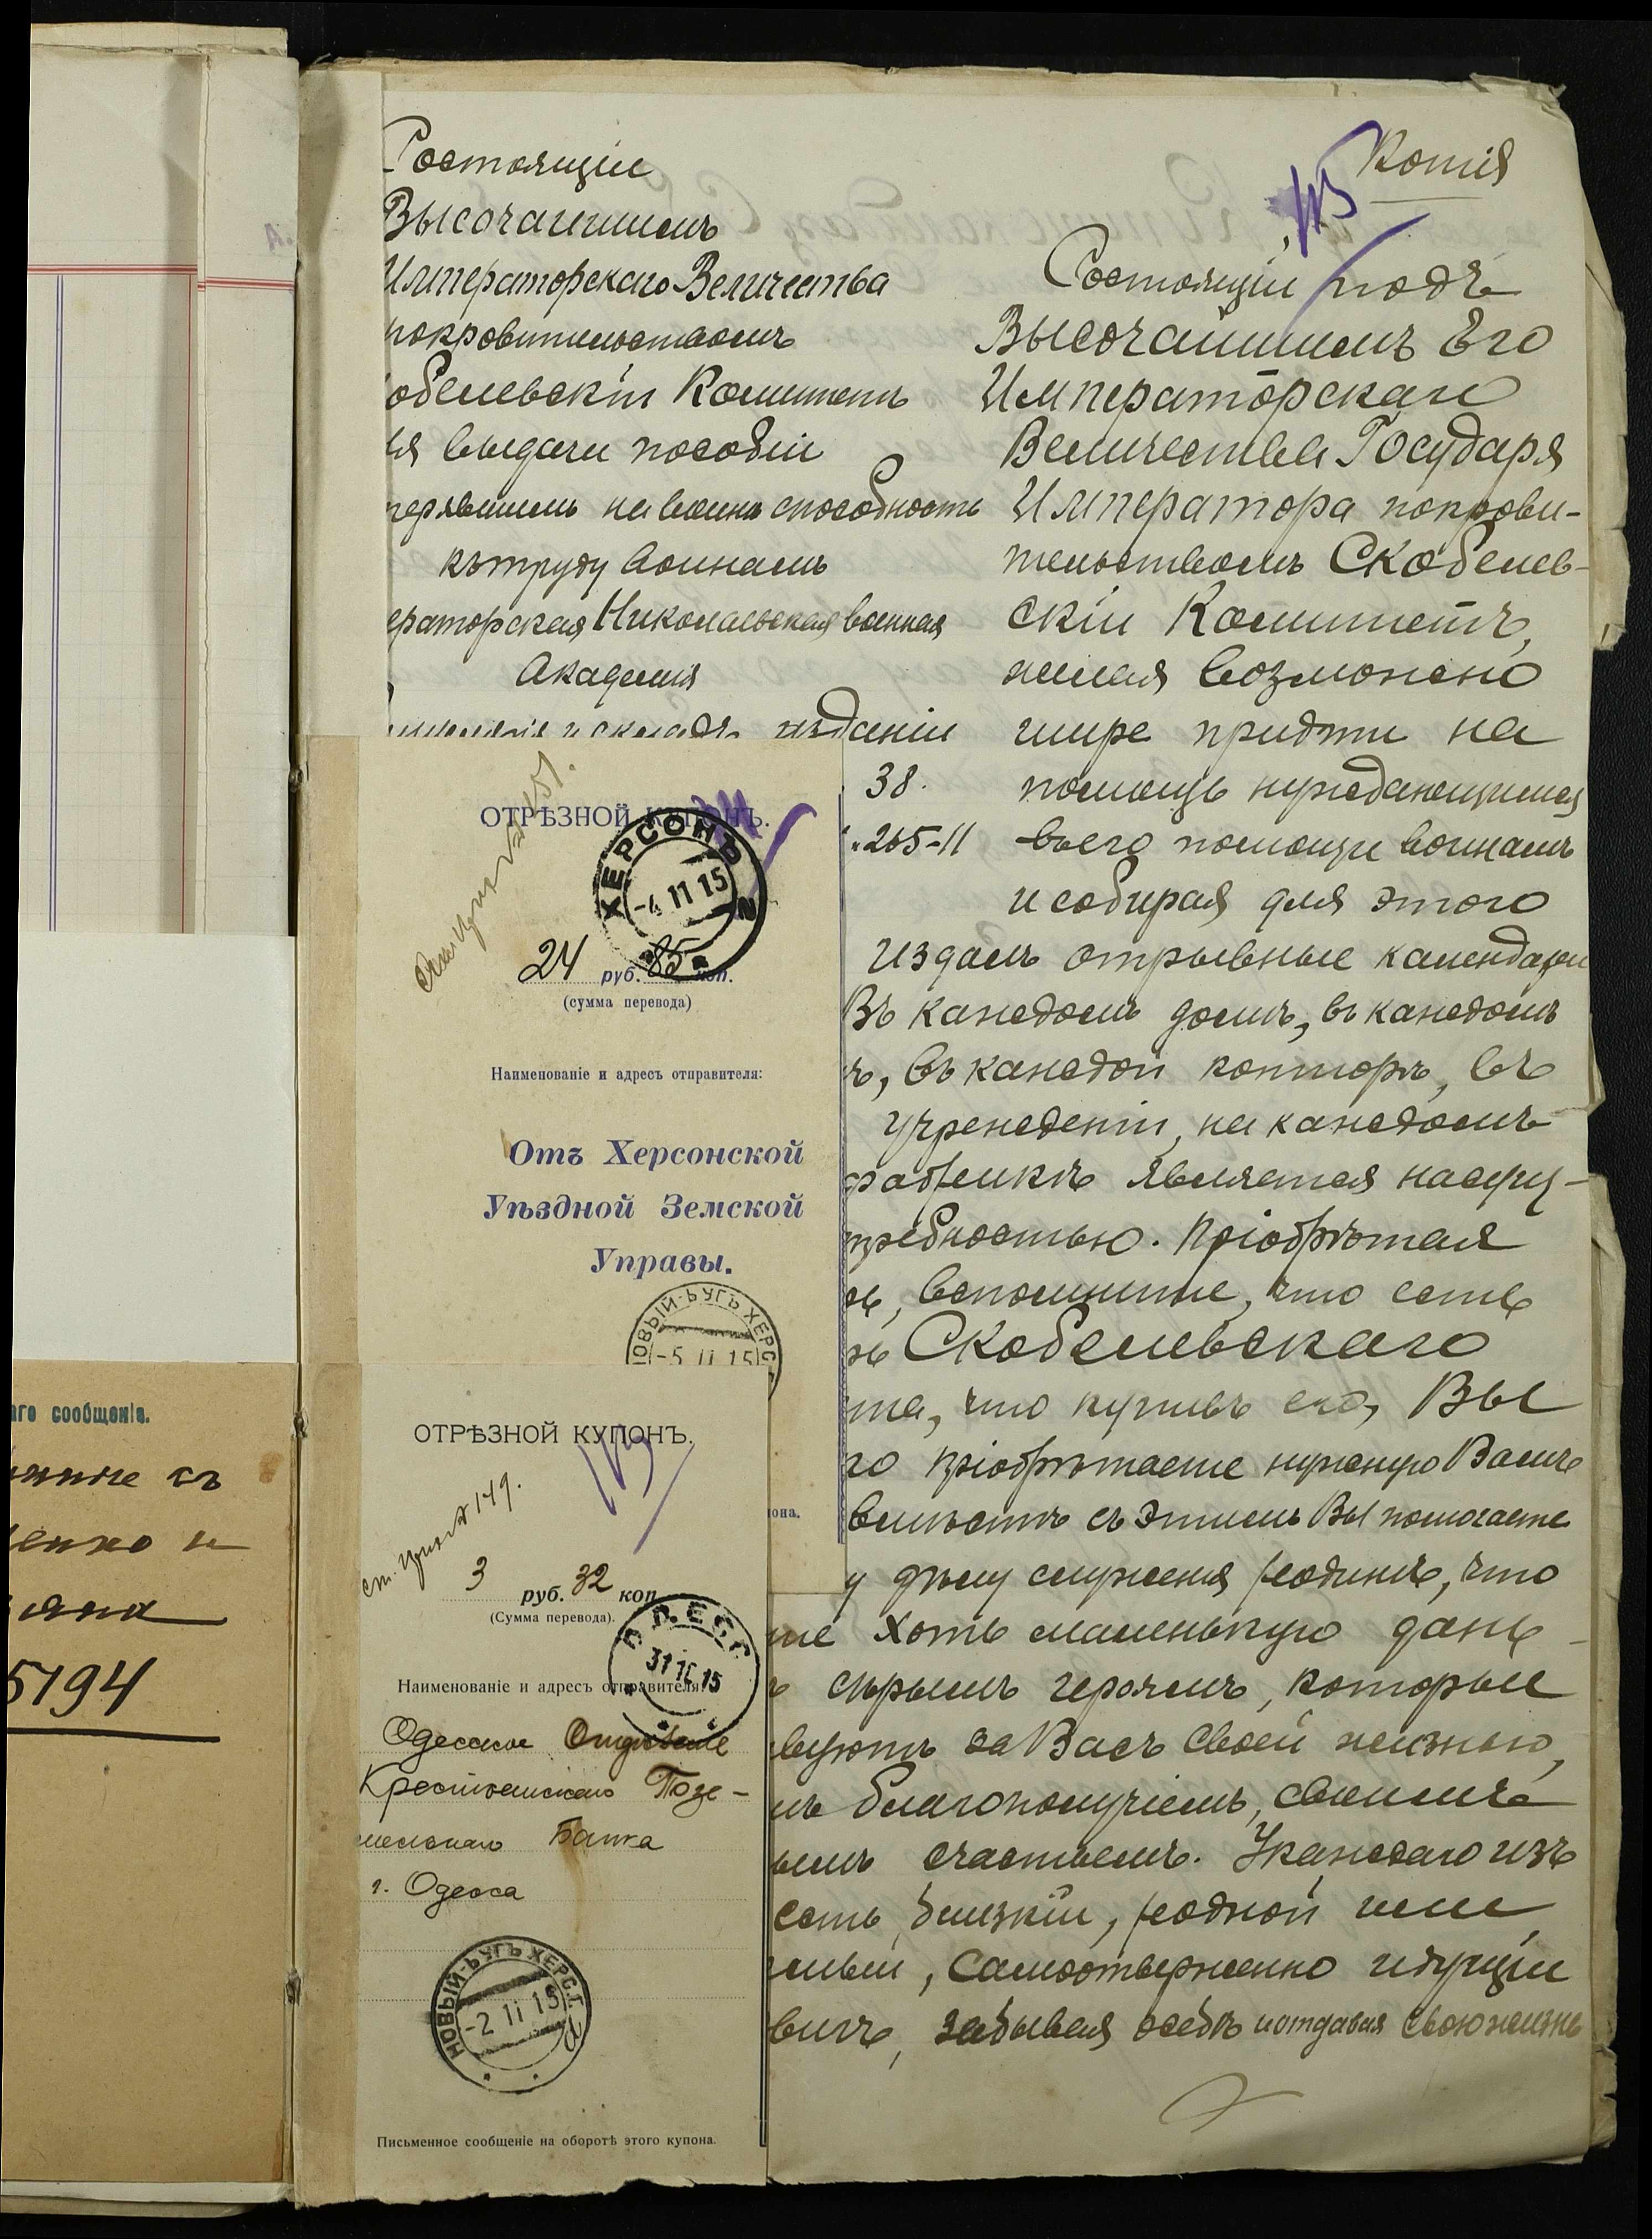 Состоящій
Высочайшимъ
Императорскаго Величества
покровительствомъ
обелевскій Комитетъ
ля выдачи пособій
терявшимъ на войнѣ способность
къ труду воинамъ
ераторская Николаевская военная
Академія
и складъ изданій
38.
265-11
Копія
Состоящій подъ
Высочайшимъ Его
Императорскаго
Величества Государя
Императора покрови-
тельствомъ Скобелев-
скій Комитетъ,
желая возможно
шире придти на
помощь нуждающимся
въ его помощи воинамъ
и собирая для этого
издалъ отрывные календари
Въ каждомъ домѣ, въ каждомъ
ѣ, въ каждой конторѣ, въ
учрежденіи, на каждомъ
фабрикѣ является насущ-
требностью. Пріобрѣтая
вспомните, что есть
Скобелевскаго
та, что купивъ его, Вы
го пріобрѣтаете нужную Вамъ
вмѣстѣ съ этимъ Вы помогаете
у дѣлу служенія родинѣ, что
те хоть маленькую дань
сѣрымъ героямъ, которые
вуютъ за Васъ своей жизнью,
мъ благополучіемъ, своимъ
ымъ счастьемъ. У каждаго изъ
есть близкій, родной или
мый, самоотверженно идущій
забывая о себѣ и отдавая свою жизнь
ОТРѢЗНОЙ КУПОНЪ.
ХЕРСОНЪ
-4 11 15
24 руб. 85 коп.
(сумма перевода)
Наименованіе и адресъ отправителя:
Отъ Херсонской
Уѣздной Земской
Управы.
НОВЫЙ-БУГЪ ХЕРС
-5 11 15
она.
ОТРѢЗНОЙ КУПОНЪ.
149.
3 руб. 32 коп
(Сумма перевода).
31 10 15
Наименованіе и адресъ отправителя:
Одесское Отдѣленіе
Крестьянскаго Позе-
мельнаго Банка
г. Одесса
НОВЫЙ-БУГЪ ХЕРС.Г.
-2 11 15
Письменное сообщеніе на оборотѣ этого купона.
аго сообщенія.
5194